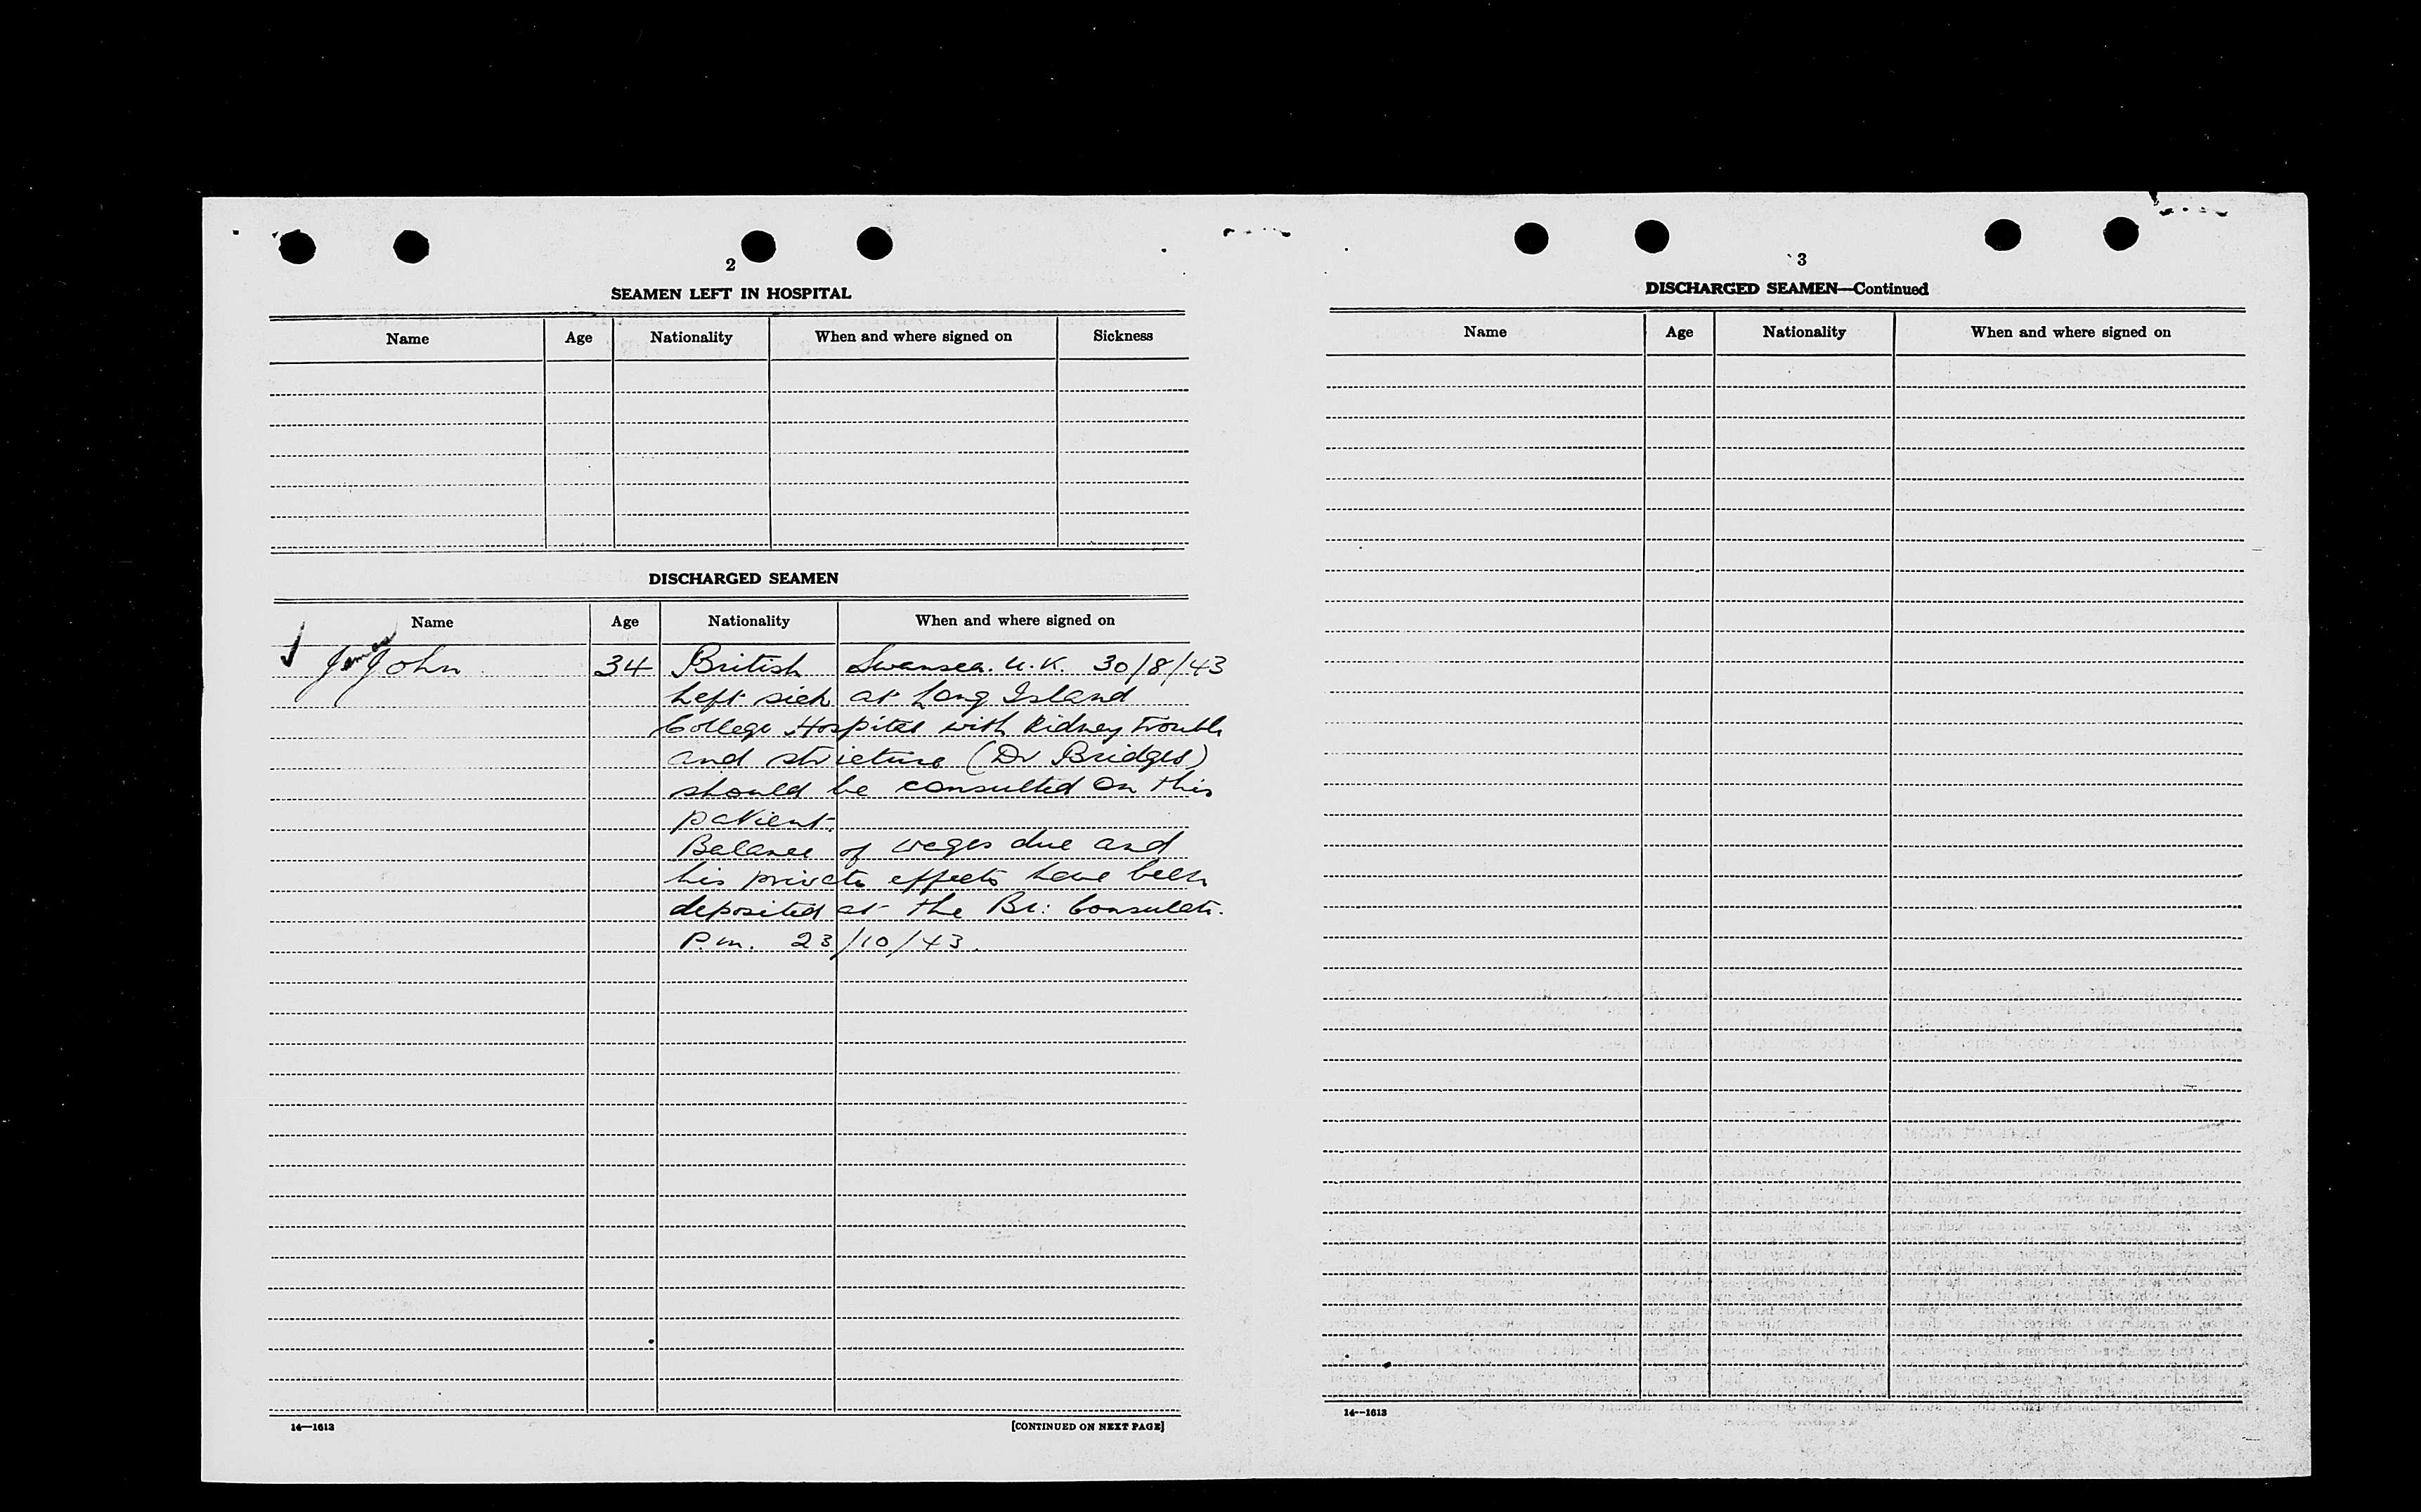 2
SEAMEN LEFT IN HOSPITAL
Name Age Nationality When and where signed on Sickness
DISCHARGED SEAMEN
Name Age Nationality When and where signed on
James John 34 British Swansea. U.K. 30/8/43
Left sick at Long Island
College Hospital with kidney trouble
and stricture (Dr Bridges)
should be consulted on this
patient.
Balance of wages due and
his private effects have been
deposited at the Br: Consulate.
P.m. 23/10/43.
14—1613
[CONTINUED ON NEXT PAGE]
3
DISCHARGED SEAMEN—Continued
Name Age Nationality When and where signed on
14—1613